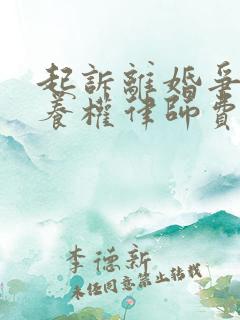 起訴離婚爭
養權律師費
李德新
未經同意禁止轉載